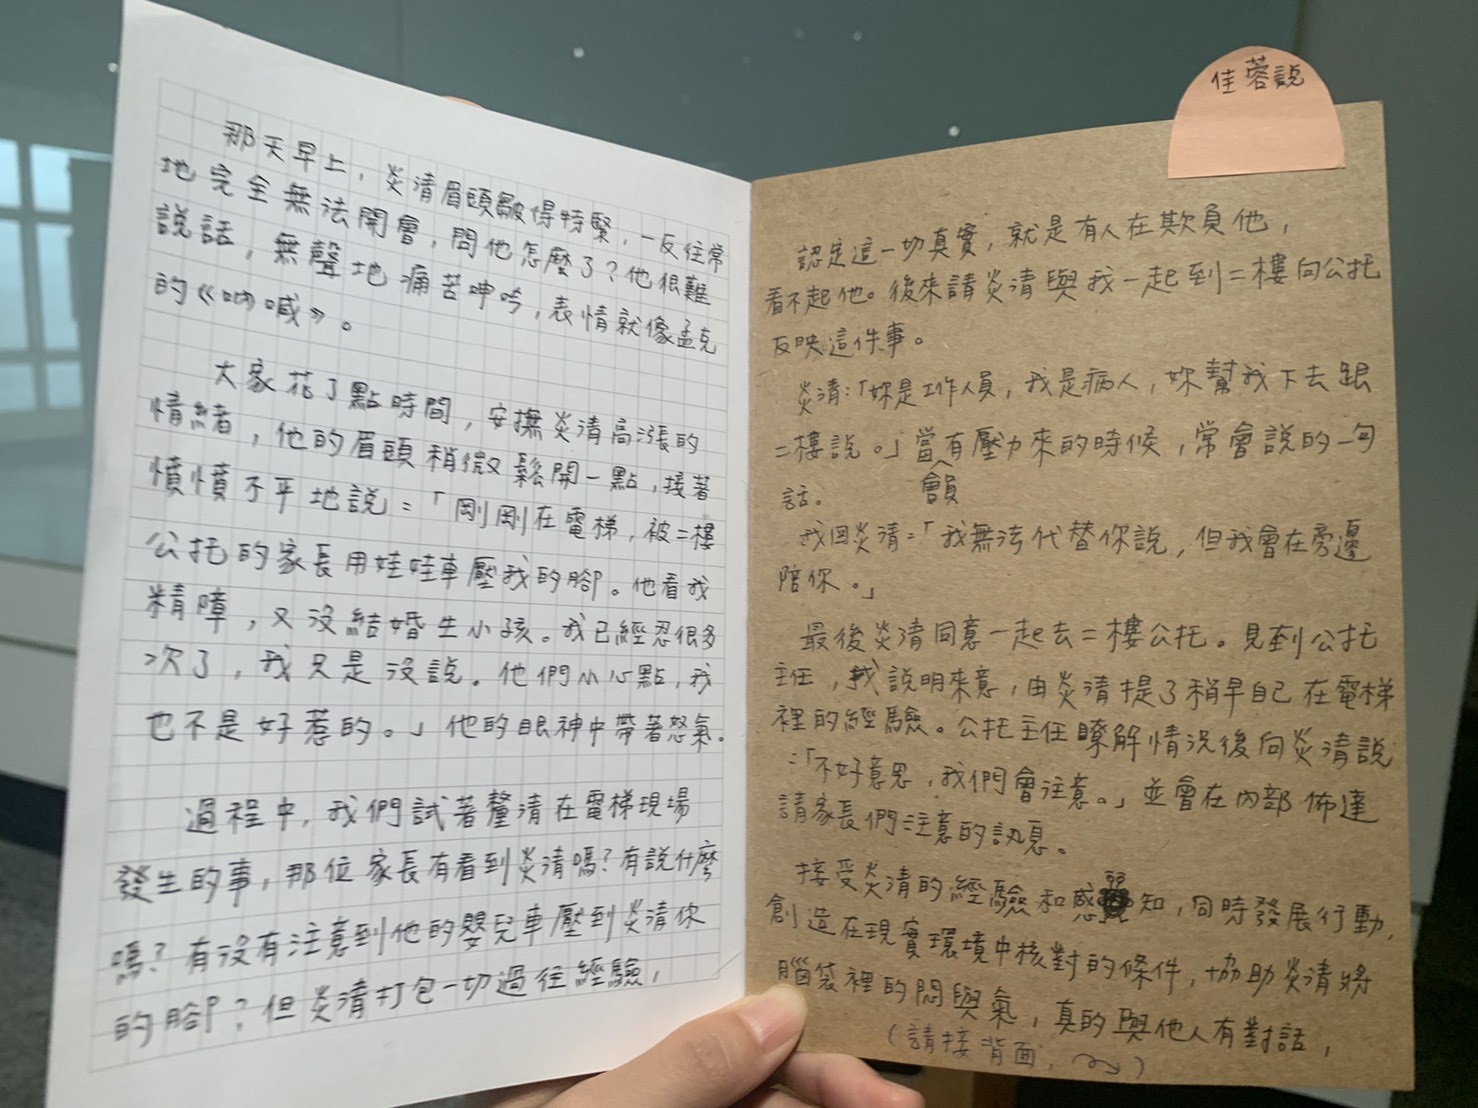 那天早上，炎清眉頭皺得特緊，一反往常
地完全無法開會，問他怎麼了？他很難
說話，無聲地痛苦呻吟，表情就像孟克
的《吶喊》。
大家花了點時間，安撫炎清高漲的
情緒，他的眉頭稍微鬆開一點，接著
憤憤不平地說：「剛剛在電梯，被二樓
公托的家長用娃娃車壓我的腳。他看我
精障，又沒結婚生小孩。我已經忍很多
次了，我只是沒說。他們小心點，我
也不是好惹的。」他的眼神中帶著怒氣。
過程中，我們試著釐清在電梯現場
發生的事，那位家長有看到炎清嗎？有說什麼
嗎？有沒有注意到他的嬰兒車壓到炎清你
的腳？但炎清打包一切過往經驗，
佳蓉說
認定這一切真實，就是有人在欺負他，
看不起他。後來請炎清與我一起到二樓向公托
反映這件事。
炎清：「妳是工作人員，我是病人，妳幫我下去跟
二樓說。」當會員有壓力來的時候，常會說的一句
話。
我回炎清：「我無法代替你說，但我會在旁邊
陪你。」
最後炎清同意一起去二樓公托。見到公托
主任，我說明來意，由炎清提了稍早自己在電梯
裡的經驗。公托主任瞭解情況後向炎清說
：「不好意思，我們會注意。」並會在內部佈達
請家長們注意的訊息。
接受炎清的經驗和感知，同時發展行動，
創造在現實環境中核對的條件，協助炎清將
腦袋裡的悶與氣，真的與他人有對話，
（請接背面）